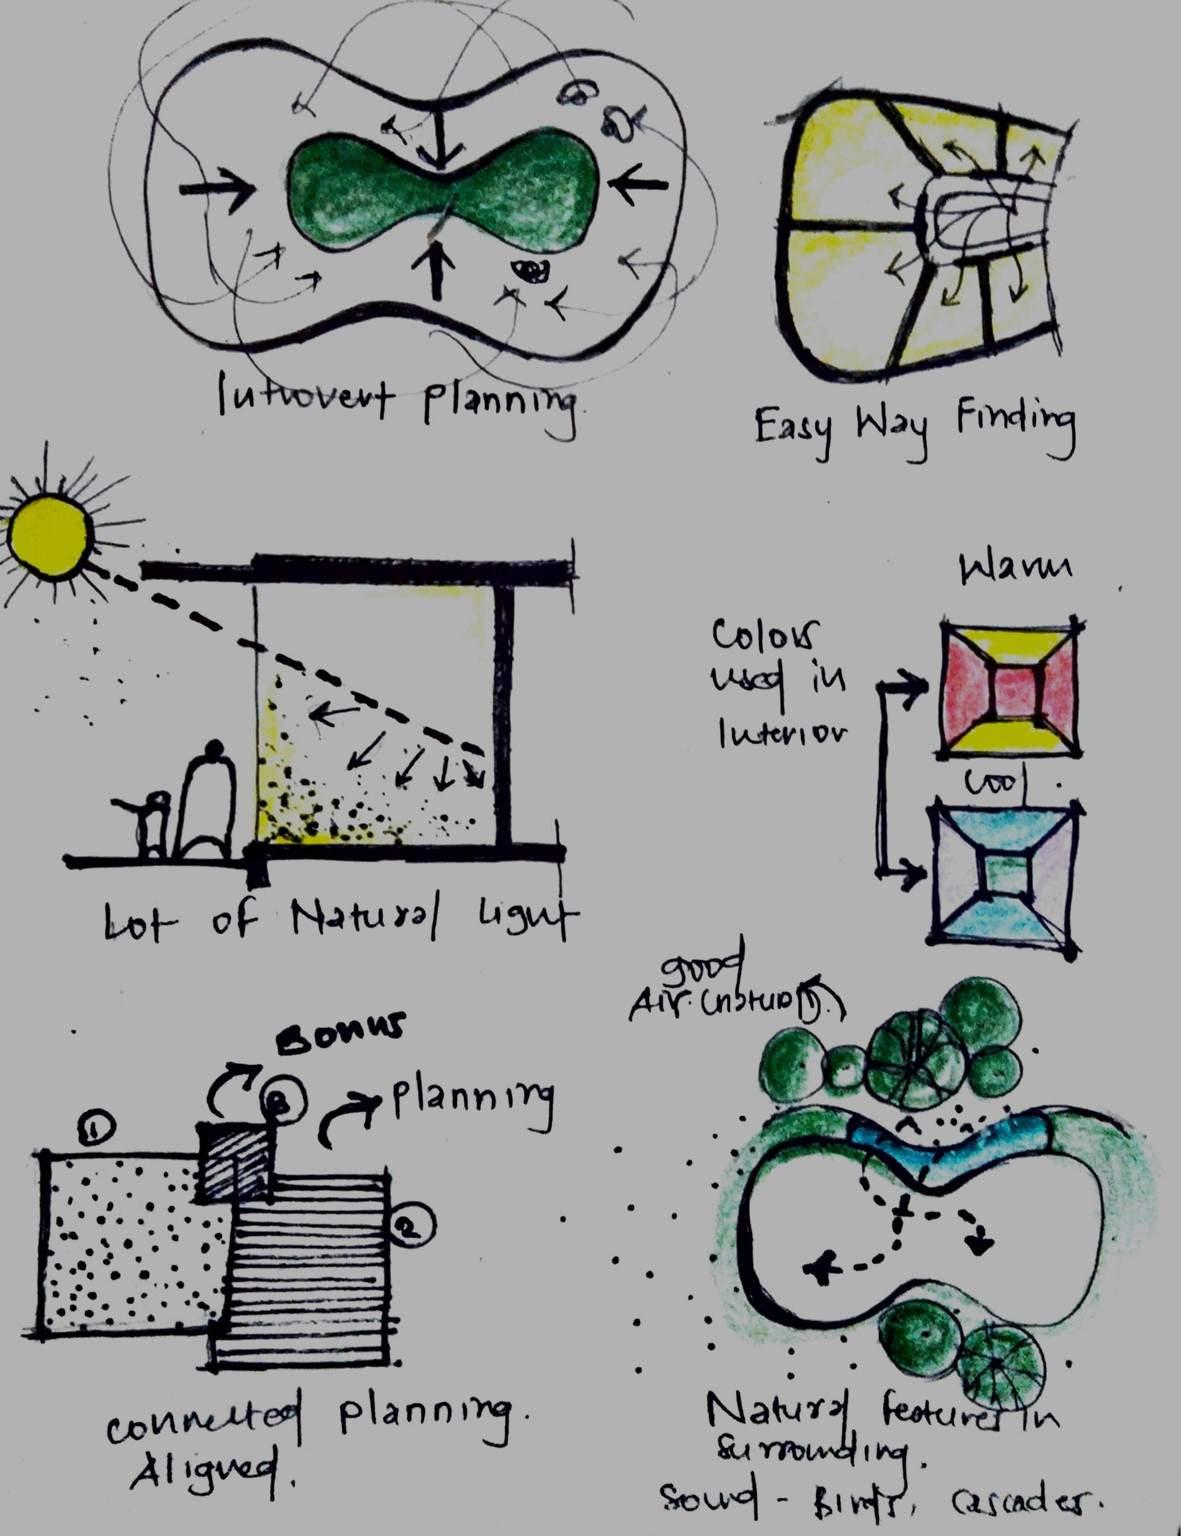 Introvert planning.
Easy Way Finding
Warm
Colors
used in
Interior
Cool.
Lot of Natural Light
good
Air.
Bonus
3
planning
1
2
connected planning.
Aligned.
Natural features in
surrounding.
Sound - Birds, cascades.